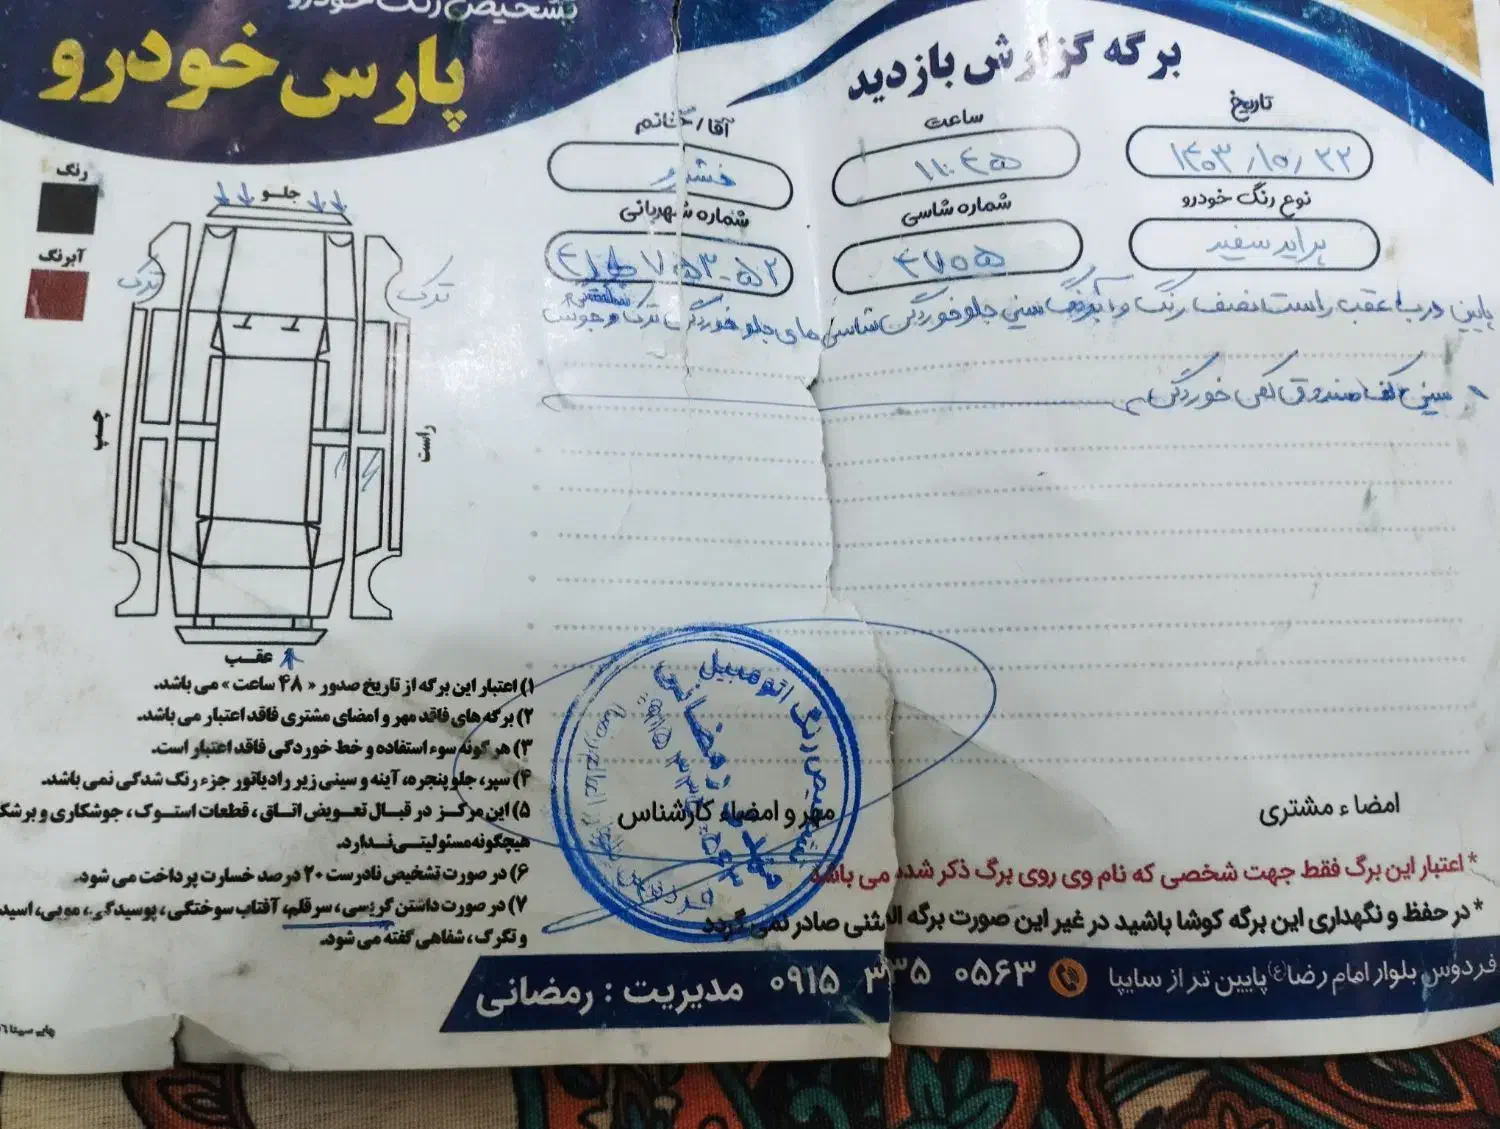 تشخیص رنگ خودرو
پارس خودرو
برگه گزارش بازدید
تاریخ
۱۴۰۳/۱۰/۲۲
ساعت
۱۱:۴۵
آقا/خانم
نوع رنگ خودرو
پراید سفید
شماره شاسی
۴۷۰۵
شماره شهربانی
پایین درب عقب راست نصف رنگ و آبرنگ سینی جلو خوردگی شاسی های جلو خوردگی ترک و جوش
سینی کف صندوق کمی خوردگی
رنگ
آبرنگ
جلو
ترک
ترک
چپ
راست
عقب
۱) اعتبار این برگه از تاریخ صدور « ۴۸ ساعت» می باشد.
۲) برگه های فاقد مهر و امضای مشتری فاقد اعتبار می باشد.
۳) هرگونه سوء استفاده و خط خوردگی فاقد اعتبار است.
۴) سپر، جلو پنجره، آینه و سینی زیر رادیاتور جزء رنگ شدگی نمی باشد.
۵) این مرکز در قبال تعویض اتاق، قطعات استوک، جوشکاری و برشکا
هیچگونه مسئولیتی ندارد.
۶) در صورت تشخیص نادرست ۲۰ درصد خسارت پرداخت می شود.
۷) در صورت داشتن گریسی، سرقلم، آفتاب سوختگی، پوسیدگی، مویی، اسید
و تگرگ، شفاهی گفته می شود.
تشخیص رنگ اتومبیل
رمضانی
مهر و امضاء کارشناس
امضاء مشتری
* اعتبار این برگ فقط جهت شخصی که نام وی روی برگ ذکر شده می باشد
* در حفظ و نگهداری این برگه کوشا باشید در غیر این صورت برگه المثنی صادر نمی گردد
فردوس بلوار امام رضا(ع) پایین تر از سایپا
۰۹۱۵ ۳۳۵ ۰۵۶۳
مدیریت : رمضانی